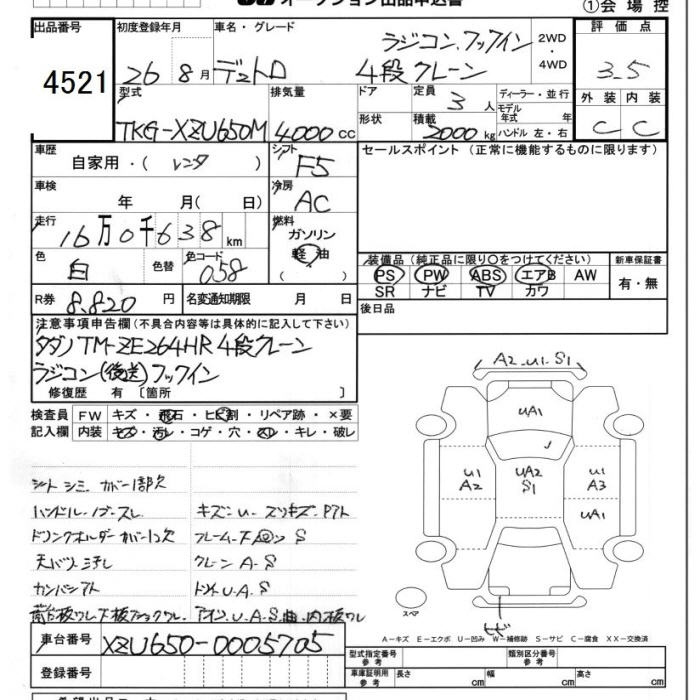 オークション出品申込書
①会場控
出品番号
4521
初度登録年月
26 8月
車名・グレード
デュトロ
ラジコン.フックイン
4段クレーン
2WD
・
4WD
評価点
3.5
外装 内装
C C
型式
TKG-XZU650M
排気量
4000cc
ドア
形状
定員
3人
積載
2000kg
ディーラー・並行
モデル
年式 年
ハンドル 左・右
車歴
自家用・(レンタ)
シフト
F5
セールスポイント(正常に機能するものに限ります)
車検
年 月( 日)
冷房
AC
走行
16万0千638km
燃料
ガソリン
軽油
色
白
色替
色コード
058
装備品(純正品に限り〇をつけてください)
PS PW ABS エアB AW
SR ナビ TV カワ
新車保証書
有・無
R券
8,820円
名変通知期限 月 日
後日品
注意事項申告欄(不具合内容等は具体的に記入して下さい)
タダノTM-ZE264HR 4段クレーン
ラジコン(後送)フックイン
修復歴 有〔箇所 〕
検査員
記入欄
FW キズ・飛石・ヒビ割・リペア跡・×要
内装 キズ・汚レ・コゲ・穴・スレ・キレ・破レ
A2.U1.S1
UA1
U1
A2
UA2
S1
U1
A3
UA1
シートシミ.カバー1部欠
ハンドル.ノブ.スレ
キズ.U.スリキズ.Pアト
ドリンクホルダーカバー1ヶ欠
フレーム.下廻ンS
天バリ ヨゴレ
クレーンA.S
カンバンアト
ドントU.A.S
荷台板ワレ
アオリ.U.A.S曲.内板ワレ
スペア
A－キズ E－エクボ U－凹み W－補修跡 S－サビ C－腐食 XX－交換済
車台番号
XZU650-0005705
登録番号
型式指定番号
参考
類別区分番号
参考
車庫証明用
参考
長さ cm
幅 cm
高さ cm